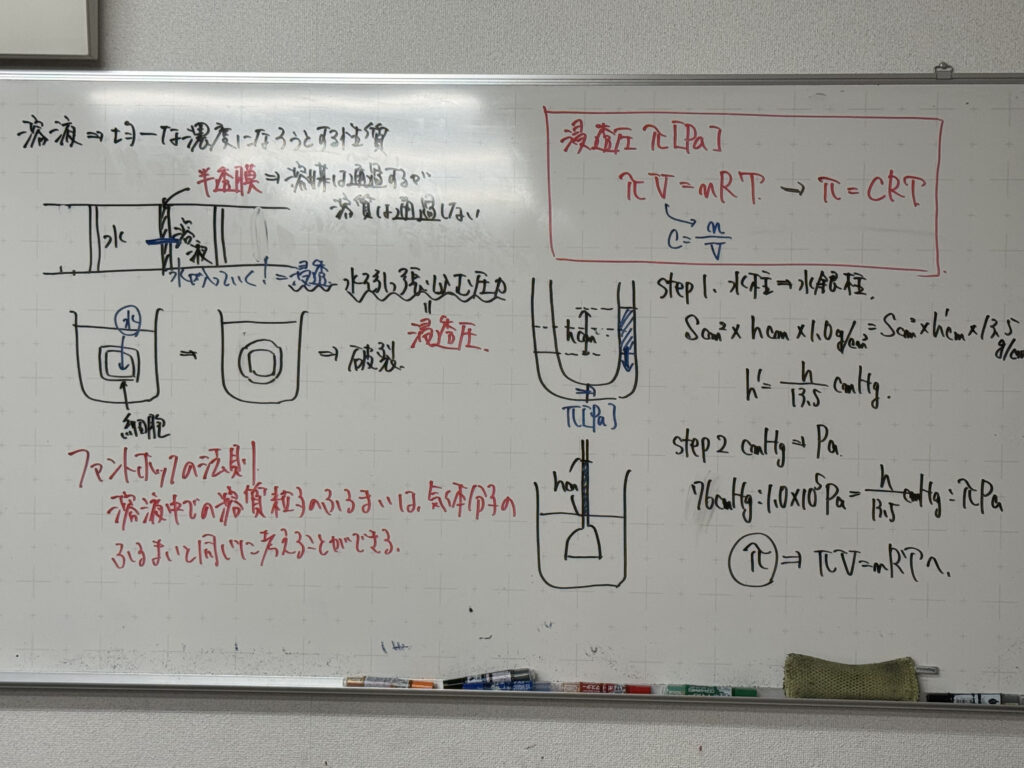 溶液⇒均一な濃度になろうとする性質
半透膜⇒溶媒は通過するが
溶質は通過しない
水
溶液
水が入っていく!=浸透
水を引っ張り込む圧力
=
浸透圧
水
→
⇒破裂
細胞
ファントホッフの法則
溶液中での溶質粒子のふるまいは、気体分子の
ふるまいと同じに考えることができる.
浸透圧 π[Pa]
πV=nRT → π=CRT
C=n/V
hcm
π[Pa]
step1. 水柱→水銀柱.
Scm²×hcm×1.0g/cm³=Scm²×h'cm×13.5g/cm³
h'=h/13.5 cmHg.
step2 cmHg→Pa
hcm
76cmHg:1.0×10⁵Pa=h/13.5 cmHg:πPa
π⇒πV=nRTへ.